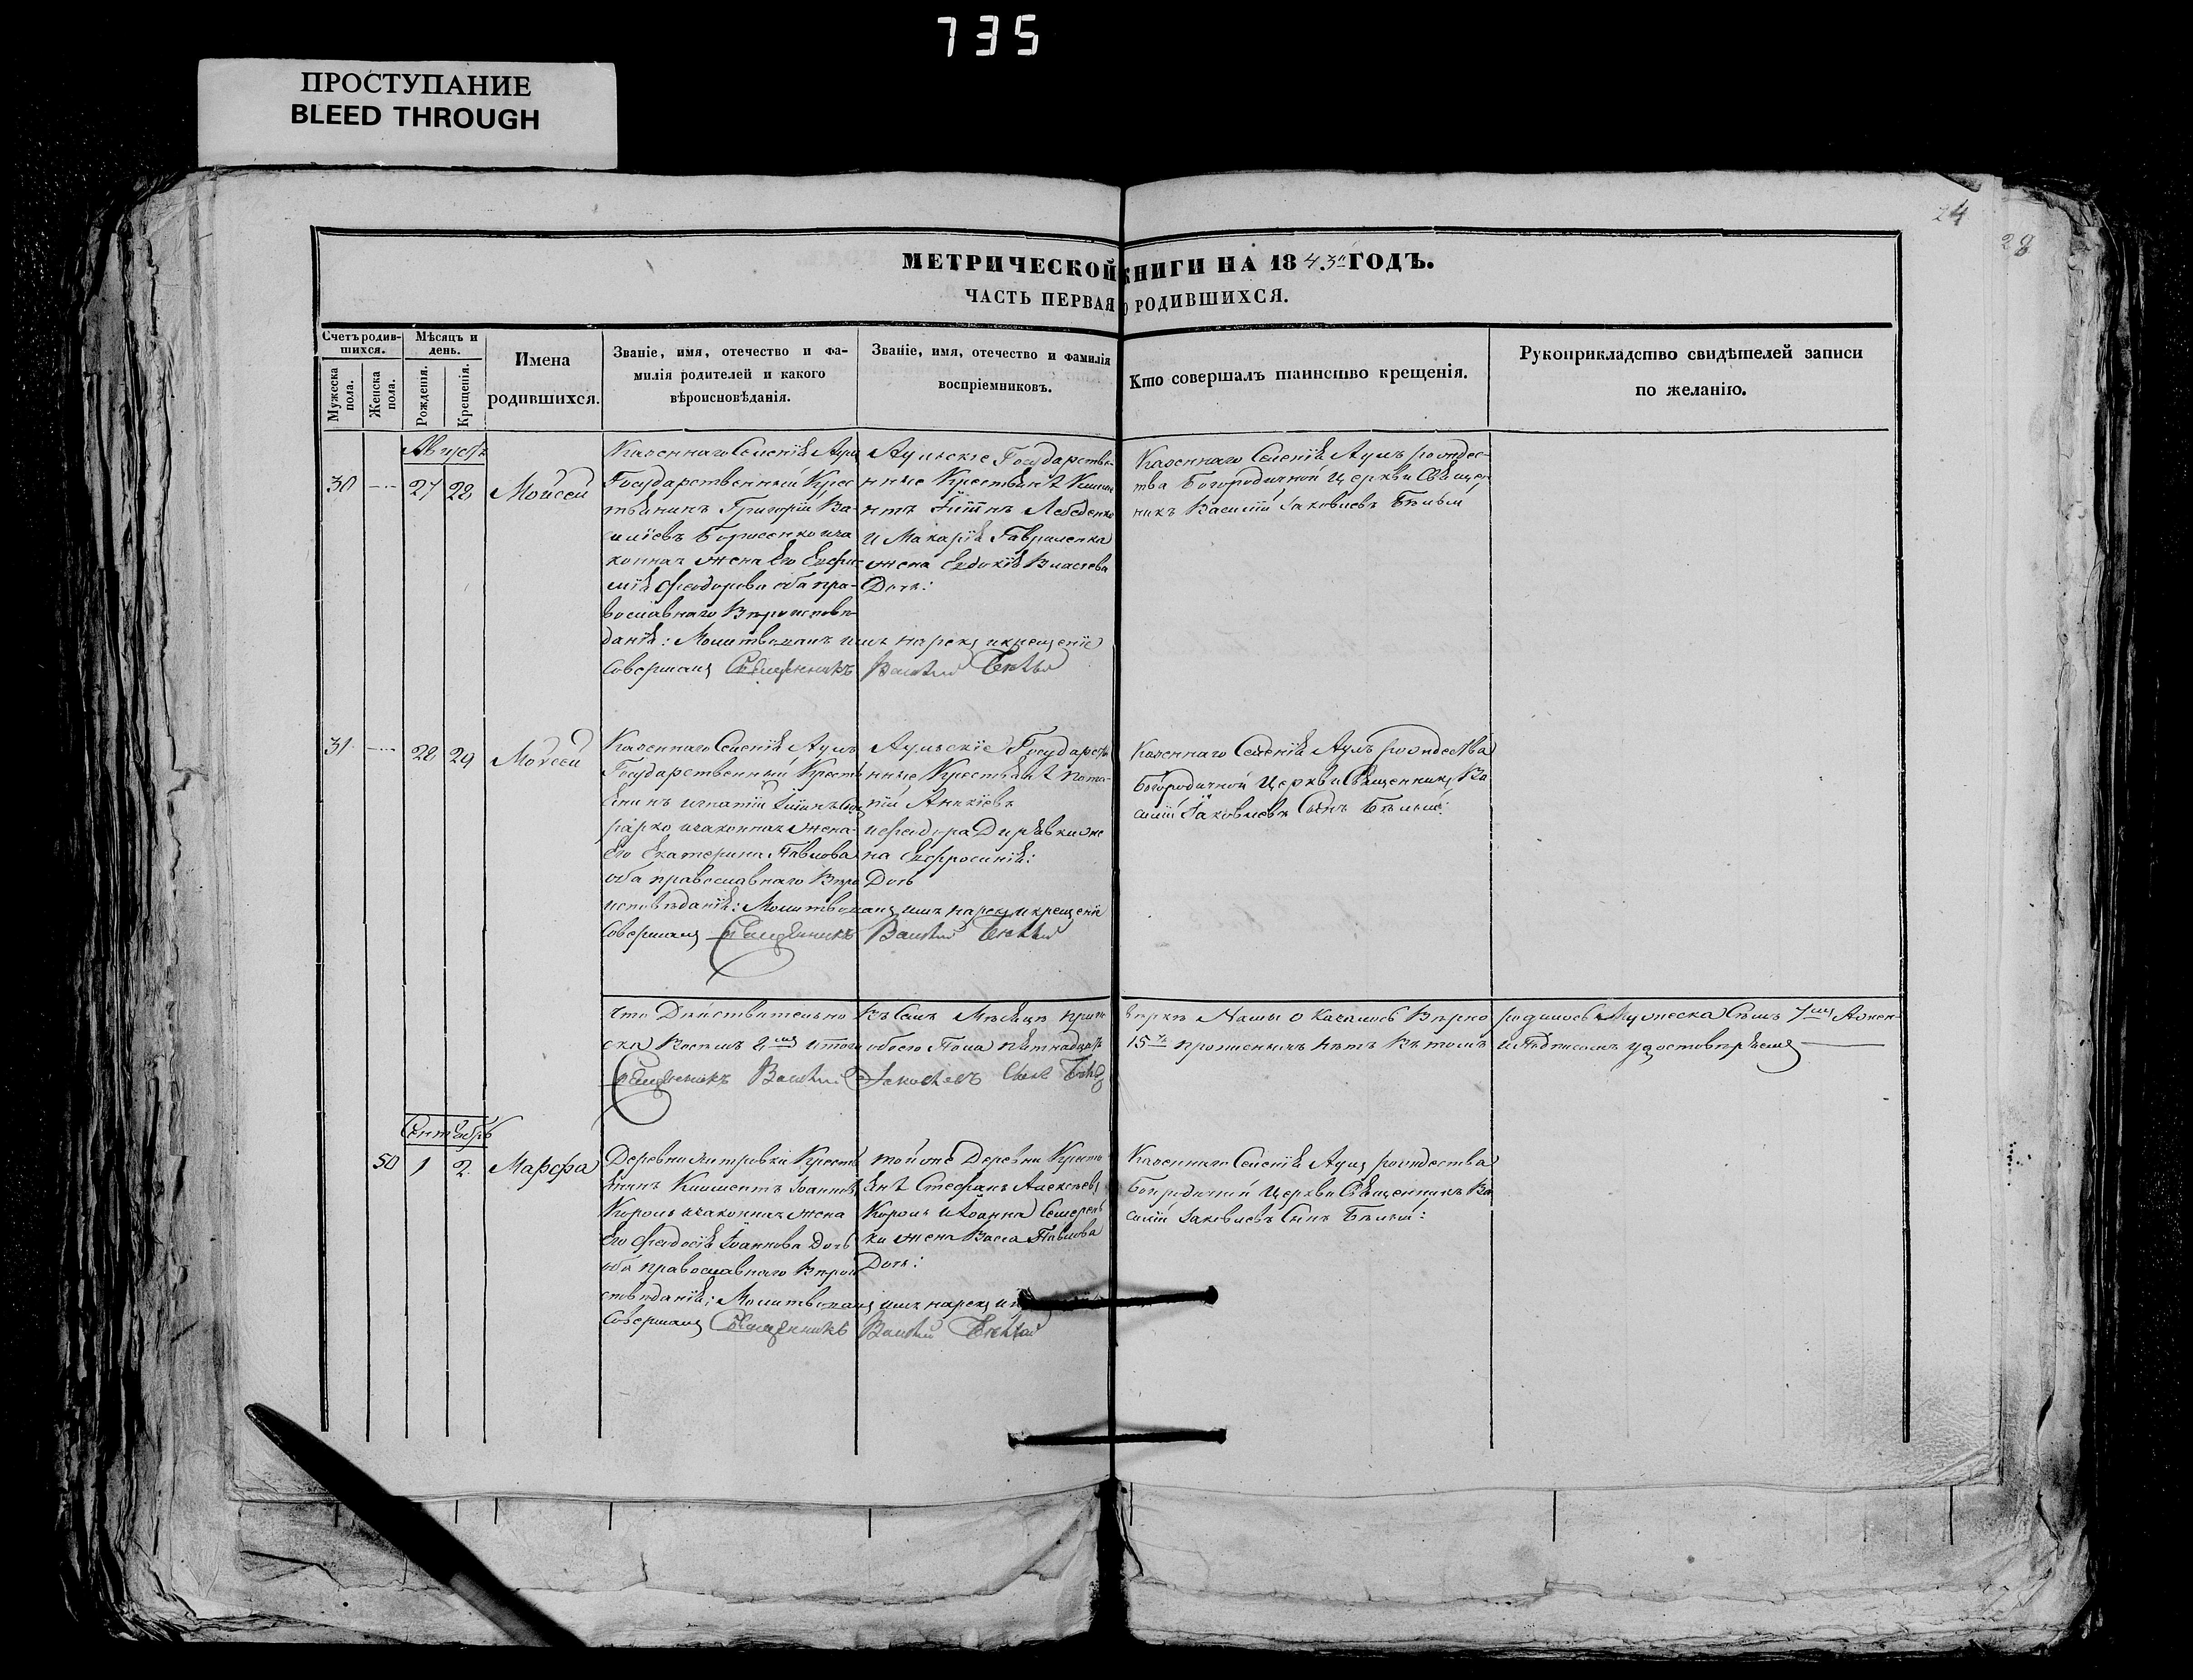 735
ПРОСТУПАНИЕ
BLEED THROUGH
24
28
МЕТРИЧЕСКОЙ КНИГИ НА 1843й ГОДЪ.
ЧАСТЬ ПЕРВАЯ О РОДИВШИХСЯ.
Счетъ родившихся.
Мужеска пола.
Женска пола.
Мѣсяцъ и день.
Рожденія.
Крещенія.
Имена
родившихся.
Званіе, имя, отечество и фа-
милія родителей и какого
вѣроисповѣданія.
Званіе, имя, отечество и фамилія
воспріемниковъ.
Кто совершалъ таинство крещенія.
Рукоприкладство свидѣтелей записи
по желанію.
Августъ
30
27 22
Мойсей
Казеннаго Селенія Аулъ
Государственный Крес
тьянинъ Григорій Ва-
силіевъ Борисенко иза
конная жена Его Евфи
мія Феодорова оба пра-
вославнаго Вѣроисповѣ
данія: Молитвовалъ имя нареклъ и крещеніе
Совершалъ Священникъ Василій Бѣлый
Аульскіе Государствен-
ные Крестьяне
Лебеденко
и Макарія Гавриленка
жена Евдокія Власіева
Дочь:
Казеннаго Селенія Аулъ рождес-
тва Богородичной Церкви Священ
никъ Василій Іаковлевъ Бѣлый
31
28 29
Мойсей
Казеннаго Селенія Аулъ
Государственный Кресть
янинъ Игнатій
изаконная жена
Его Екатерина Павлова
оба православнаго Вѣро
исповѣданія: Молитвовалъ имя нареклъ и крещеніе
Совершалъ Священникъ Василій Бѣлый
Аульскіе Государств
нные Крестьяне Пота-
пій Аникіевъ
и Феодора же
на Евфросинія:
Дочь
Казеннаго Селенія Аулъ рождества
Богородичной Церкви Священникъ Ва
силій Іаковлевъ Сынъ Бѣлый:
Что Дѣйствительно Въ Семъ Мѣсяцѣ при це
ркви Нашы оказалось Вѣрно родилось Мужеска Семъ 7мъ Женс-
ска Восемъ 8мъ итого обоего Пола пятнадцать
15ть пропискымъ нѣтъ Въ томъ и Подписомъ удостовѣряемъ
Священникъ Василій Іаковлевъ Сынъ Бѣлый
Сентябрь
50 1 2
Марфа
Деревни Митровки Кресть
янинъ Климентъ Іоанновъ
Король изаконная жена
Его Феодосія Іоаннова Дочь
оба православнаго Вѣрои
сповѣданія: Молитвовалъ имя нареклъ и
Совершалъ Священникъ Василій Бѣлый
той же Деревни Кресть
яне Стефанъ Алексѣевъ
Король и Іоанна Семерень
ки жена Васса Павлова
Дочь:
Казеннаго Селенія Аулъ рождества
Богородичной Церкви Священникъ Ва
силій Іаковлевъ Сынъ Бѣлый: